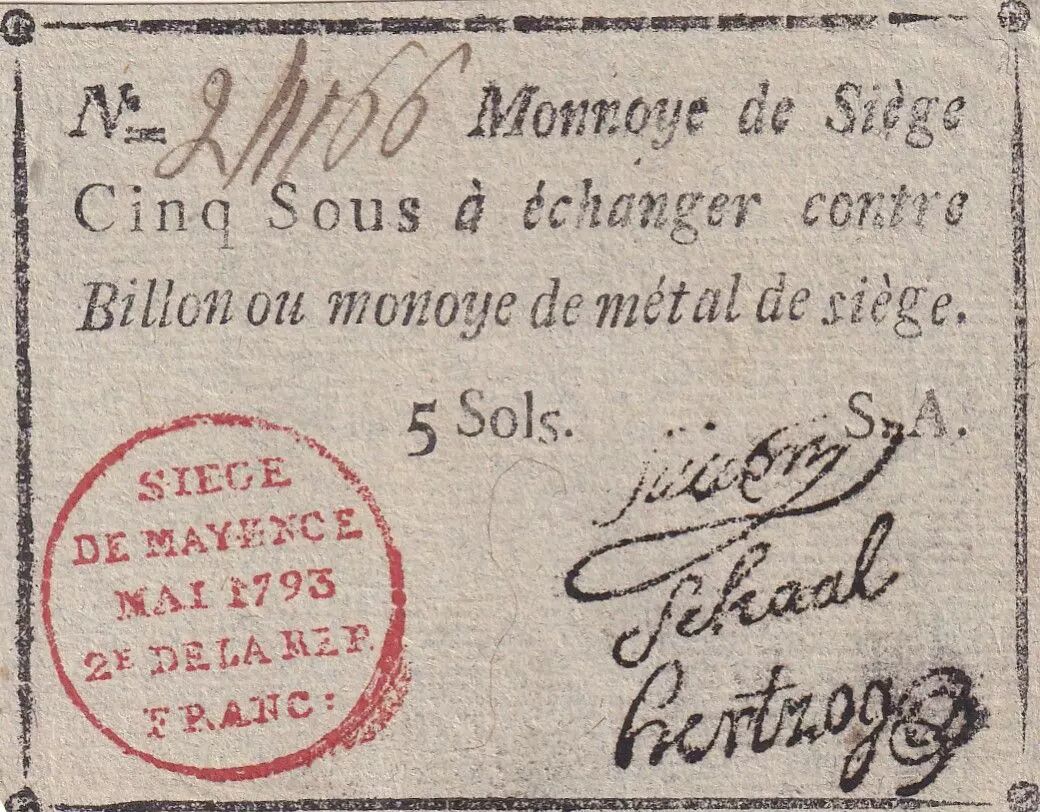 No. 24166 Monnoye de Siège
Cinq Sous à échanger contre
Billon ou monoye de métal de siège.
5 Sols. S. A.
SIEGE
DE MAYENCE
MAI 1793
2E DE LA REP
FRANC:
Schaal
hertzog